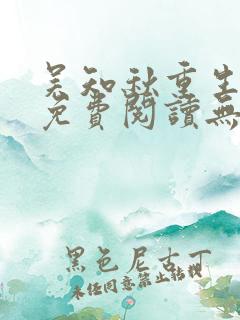 吴知秋重生
免費閱讀無
黑色尼古丁
未经同意禁止转载